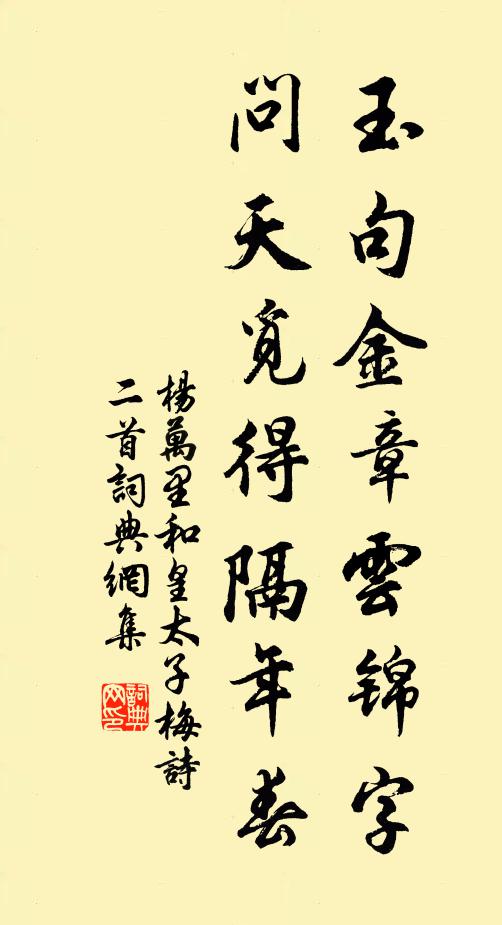 玉句金章雲錦字
問天覓得隔年春
楊萬里和皇太子梅詩
二首詞典網集
詞典網印